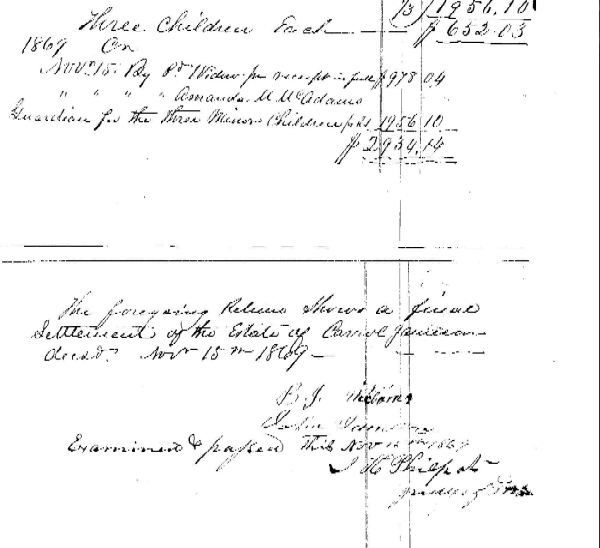 3) 1956.10
Three Children Each $652.03
1869 Cr
Novr 15 By Pd Widow pr receipt in full $978.04
" " " " Amanda M McAdams
Guardian for the three Minor Children 1956.10
$2934.14
The foregoing Returns Shows a final
Settlement of the Estate of Carrol Jamison
decsd. Novr 15th 1869
B. J.
John
Examined & passed this Nov 1869
J H Philpot